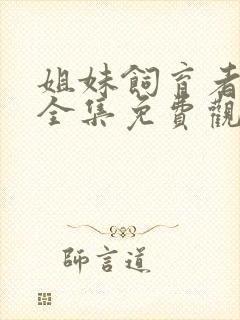 姐妹飼育者
全集免費觀
師言道